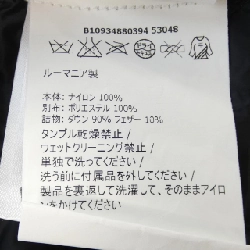 D10934880394 53048
ルーマニア製
本体: ナイロン 100%
別布: ポリエステル 100%
詰物: ダウン 90% フェザー 10%
タンブル乾燥禁止 /
ウェットクリーニング禁止 /
単独で洗ってください /
洗う前に付属品を外してください /
製品を裏返して洗濯して、そのままアイロ
ンをかけてください /